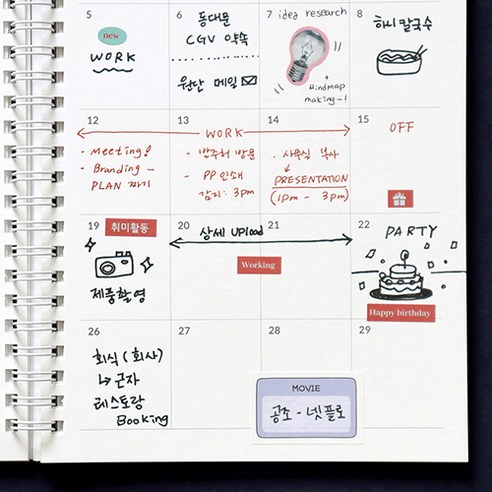 5
6
7
8
new
WORK
동대문
CGV 약속
원단 메일
idea research
+
Mindmap
making~!
하니칼국수
12
13
14
15
WORK
· Meeting!
· Branding -
PLAN 짜기
· 방문
· PP 인쇄
감리: 3pm
· 사무실 복사
PRESENTATION
(1pm - 3pm)
OFF
19
20
21
22
취미활동
제품촬영
상세 upload
Working
PARTY
Happy birthday
26
27
28
29
회식 (회사)
↳ 근자
레스토랑
Booking
MOVIE
공조 - 넷플로